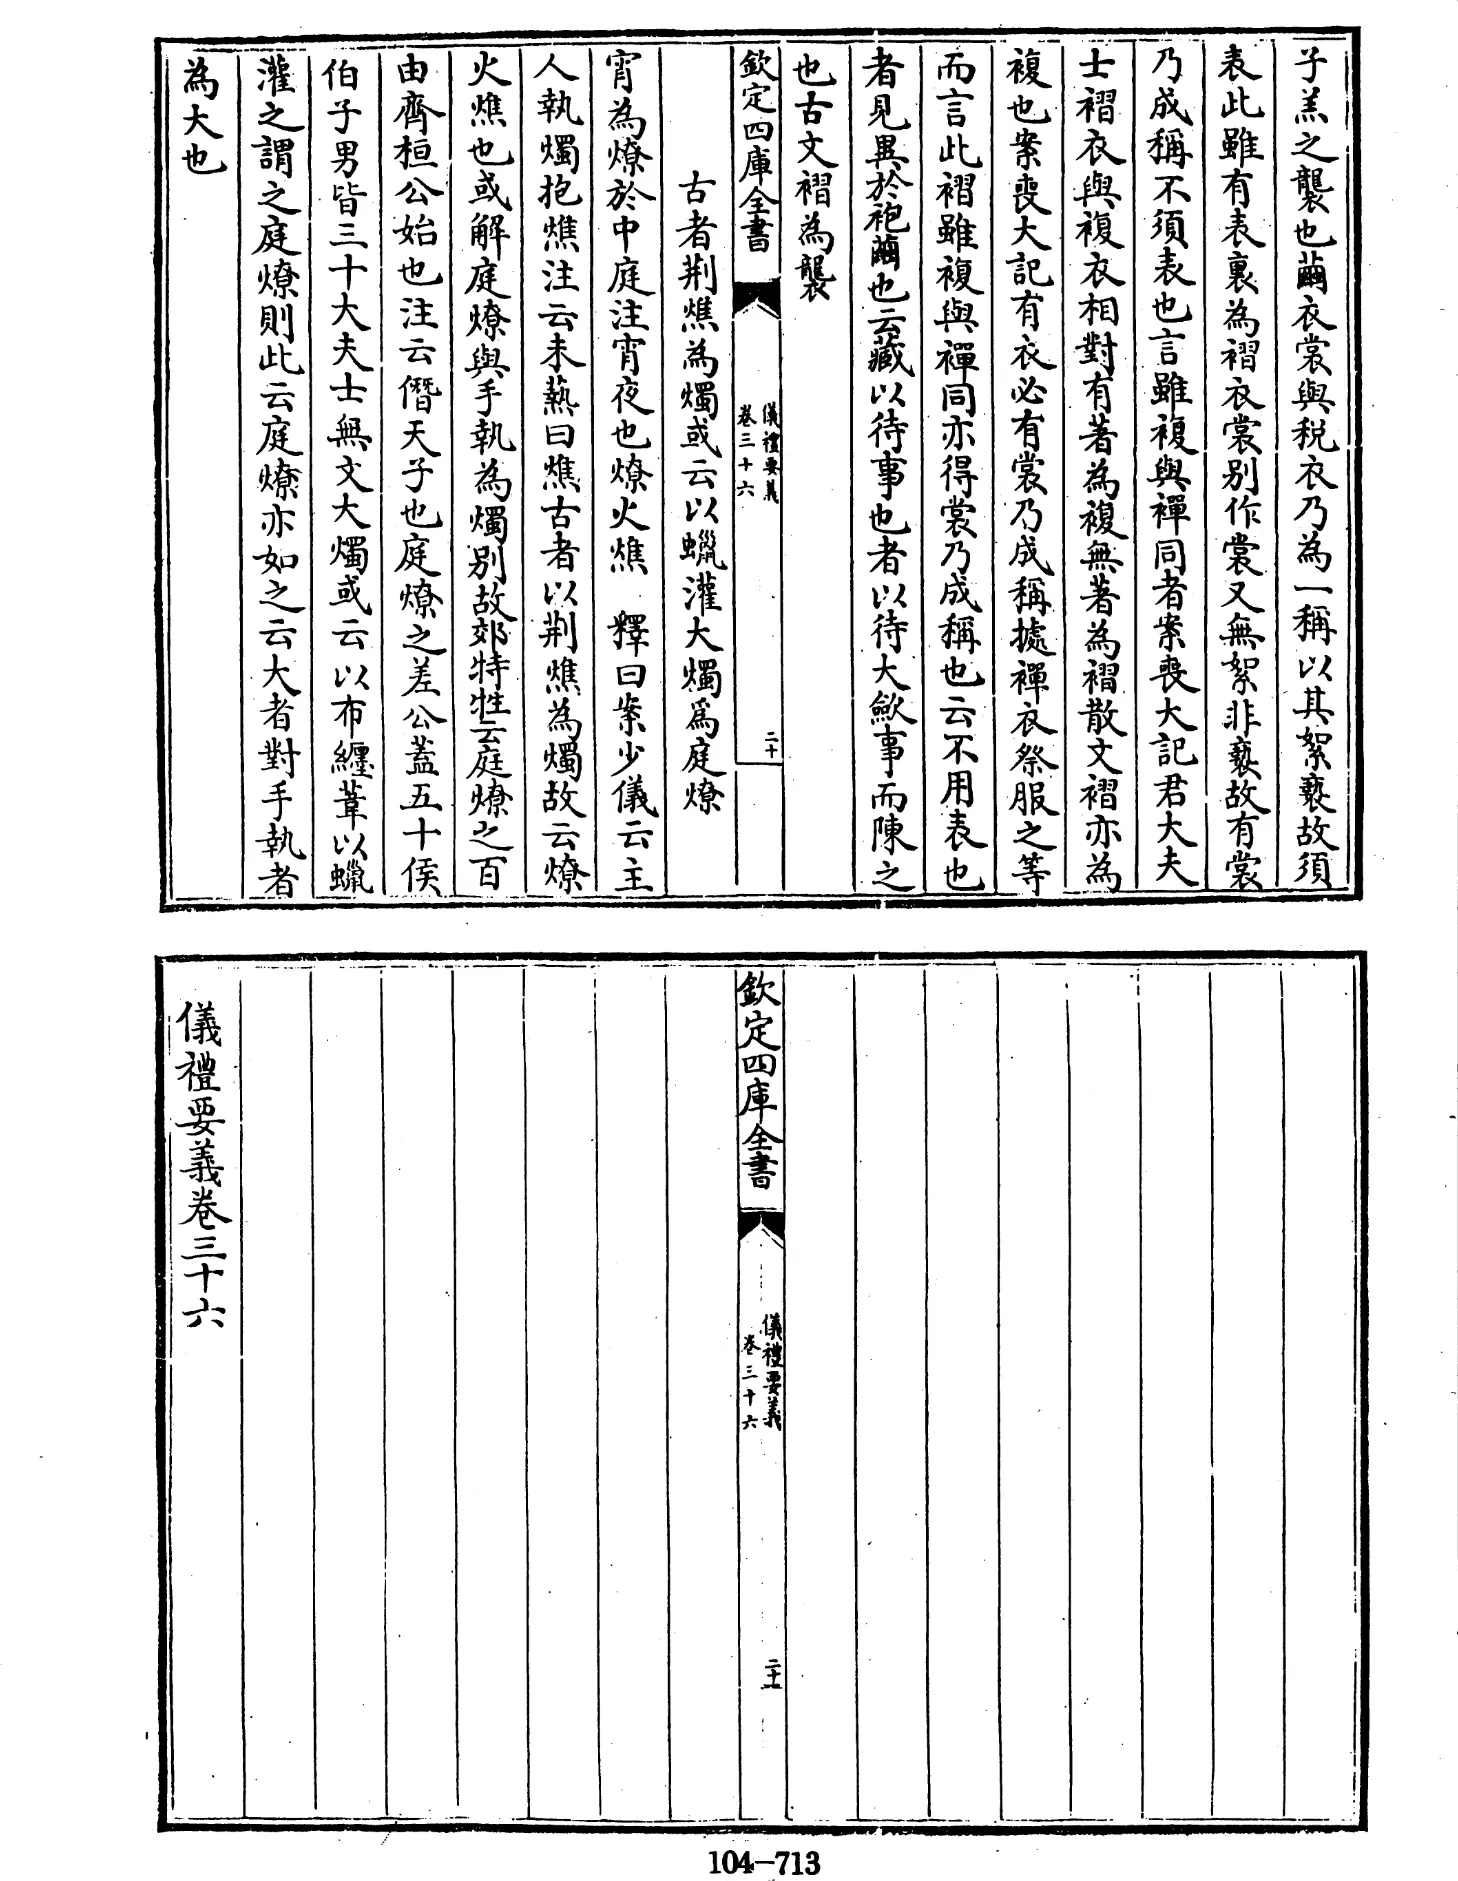 子羔之襲也繭衣裳與稅衣乃為一稱以其絮褻故須
表此雖有表裏為褶衣裳別作裳又無絮非褻故有裳
乃成稱不須表也言雖複與禪同者案喪大記君大夫
士褶衣與複衣相對有著為複無著為褶散文褶亦為
複也案喪大記有衣必有裳乃成稱據禪衣祭服之等
而言此褶雖複與禪同亦得裳乃成稱也云不用表也
者見異於袍繭也云藏以待事也者以待大歛事而陳之
也古文褶為襲
欽定四庫全書
儀禮要義
卷三十六
二十
古者荆燋為燭或云以蠟灌大燭爲庭燎
宵為燎於中庭注宵夜也燎火燋　釋曰案少儀云主
人執燭抱燋注云未爇曰燋古者以荆燋為燭故云燎
火燋也或解庭燎與手執為燭别故郊特牲云庭燎之百
由齊桓公始也注云僭天子也庭燎之差公蓋五十侯
伯子男皆三十大夫士無文大燭或云以布纒葦以蠟
灌之謂之庭燎則此云庭燎亦如之云大者對手執者
為大也
欽定四庫全書
儀禮要義
卷三十六
二十一
儀禮要義卷三十六
104-713